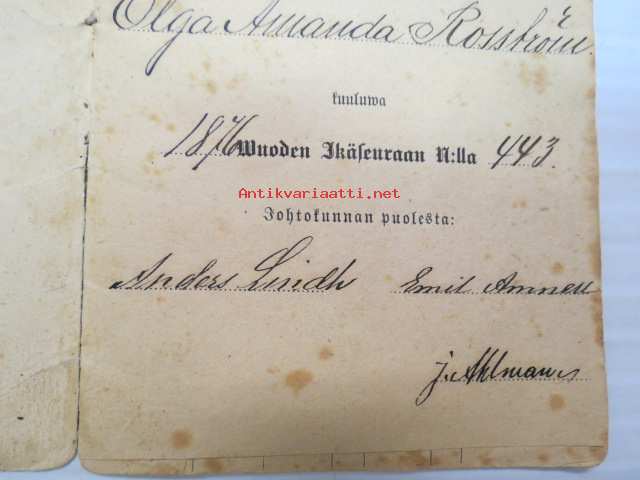 Olga Amanda Rosström
kuuluwa
1876 Wuoden Ikäseuraan N:lla 443.
Antikvariaatti.net
Johtokunnan puolesta:
Anders Lindh Emil Ammell
J. Ahlman